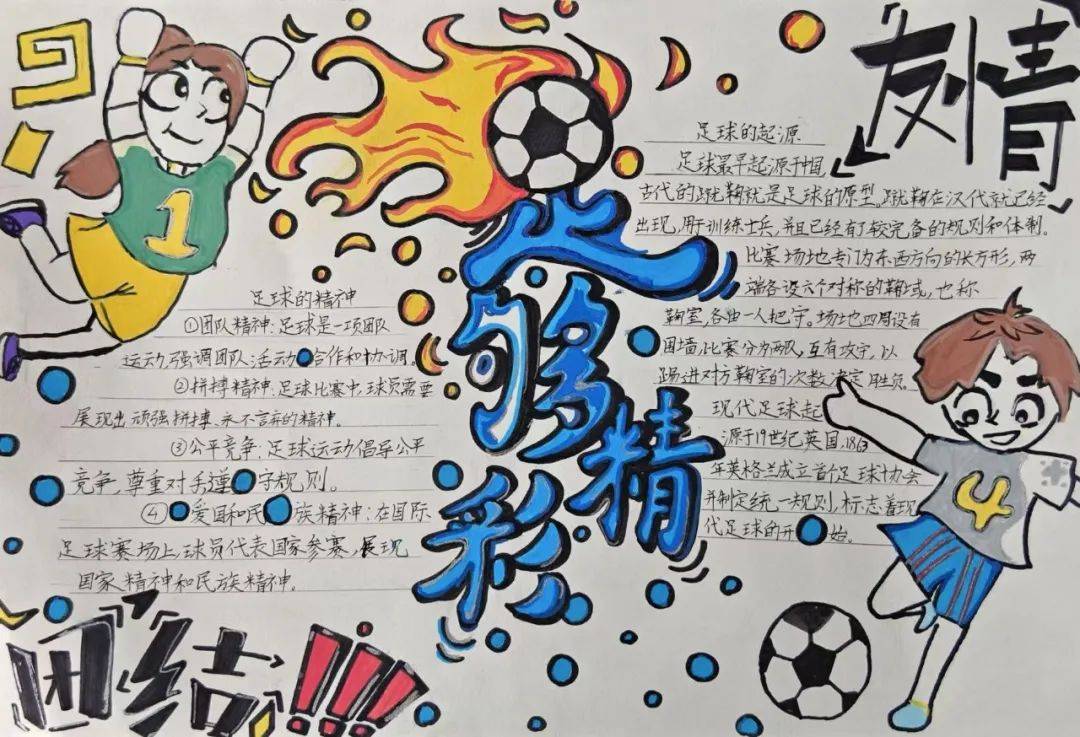 友情
足够精彩
1
足球的精神
①团队精神:足球是一项团队
运动,强调团队活动合作和协调。
②拼搏精神:足球比赛中,球员需要
展现出顽强拼搏、永不言弃的精神。
③公平竞争:足球运动倡导公平
竞争,尊重对手遵守规则。
④爱国和民族精神:在国际
足球赛场上,球员代表国家参赛,展现
国家精神和民族精神。
团结!!!
足球的起源
足球最早起源于中国,
古代的蹴鞠就是足球的原型。蹴鞠在汉代就已经
出现,用于训练士兵,并且已经有了较完备的规则和体制。
比赛场地专门为东西方向的长方形,两
端各设六个对称的鞠域,也称
鞠室,各由一人把守。场地四周设有
围墙,比赛分为两队,互有攻守,以
踢进对方鞠室的次数决定胜负。
现代足球起
源于19世纪英国,1863
年英格兰成立首个足球协会
并制定统一规则,标志着现
代足球的开始。
4